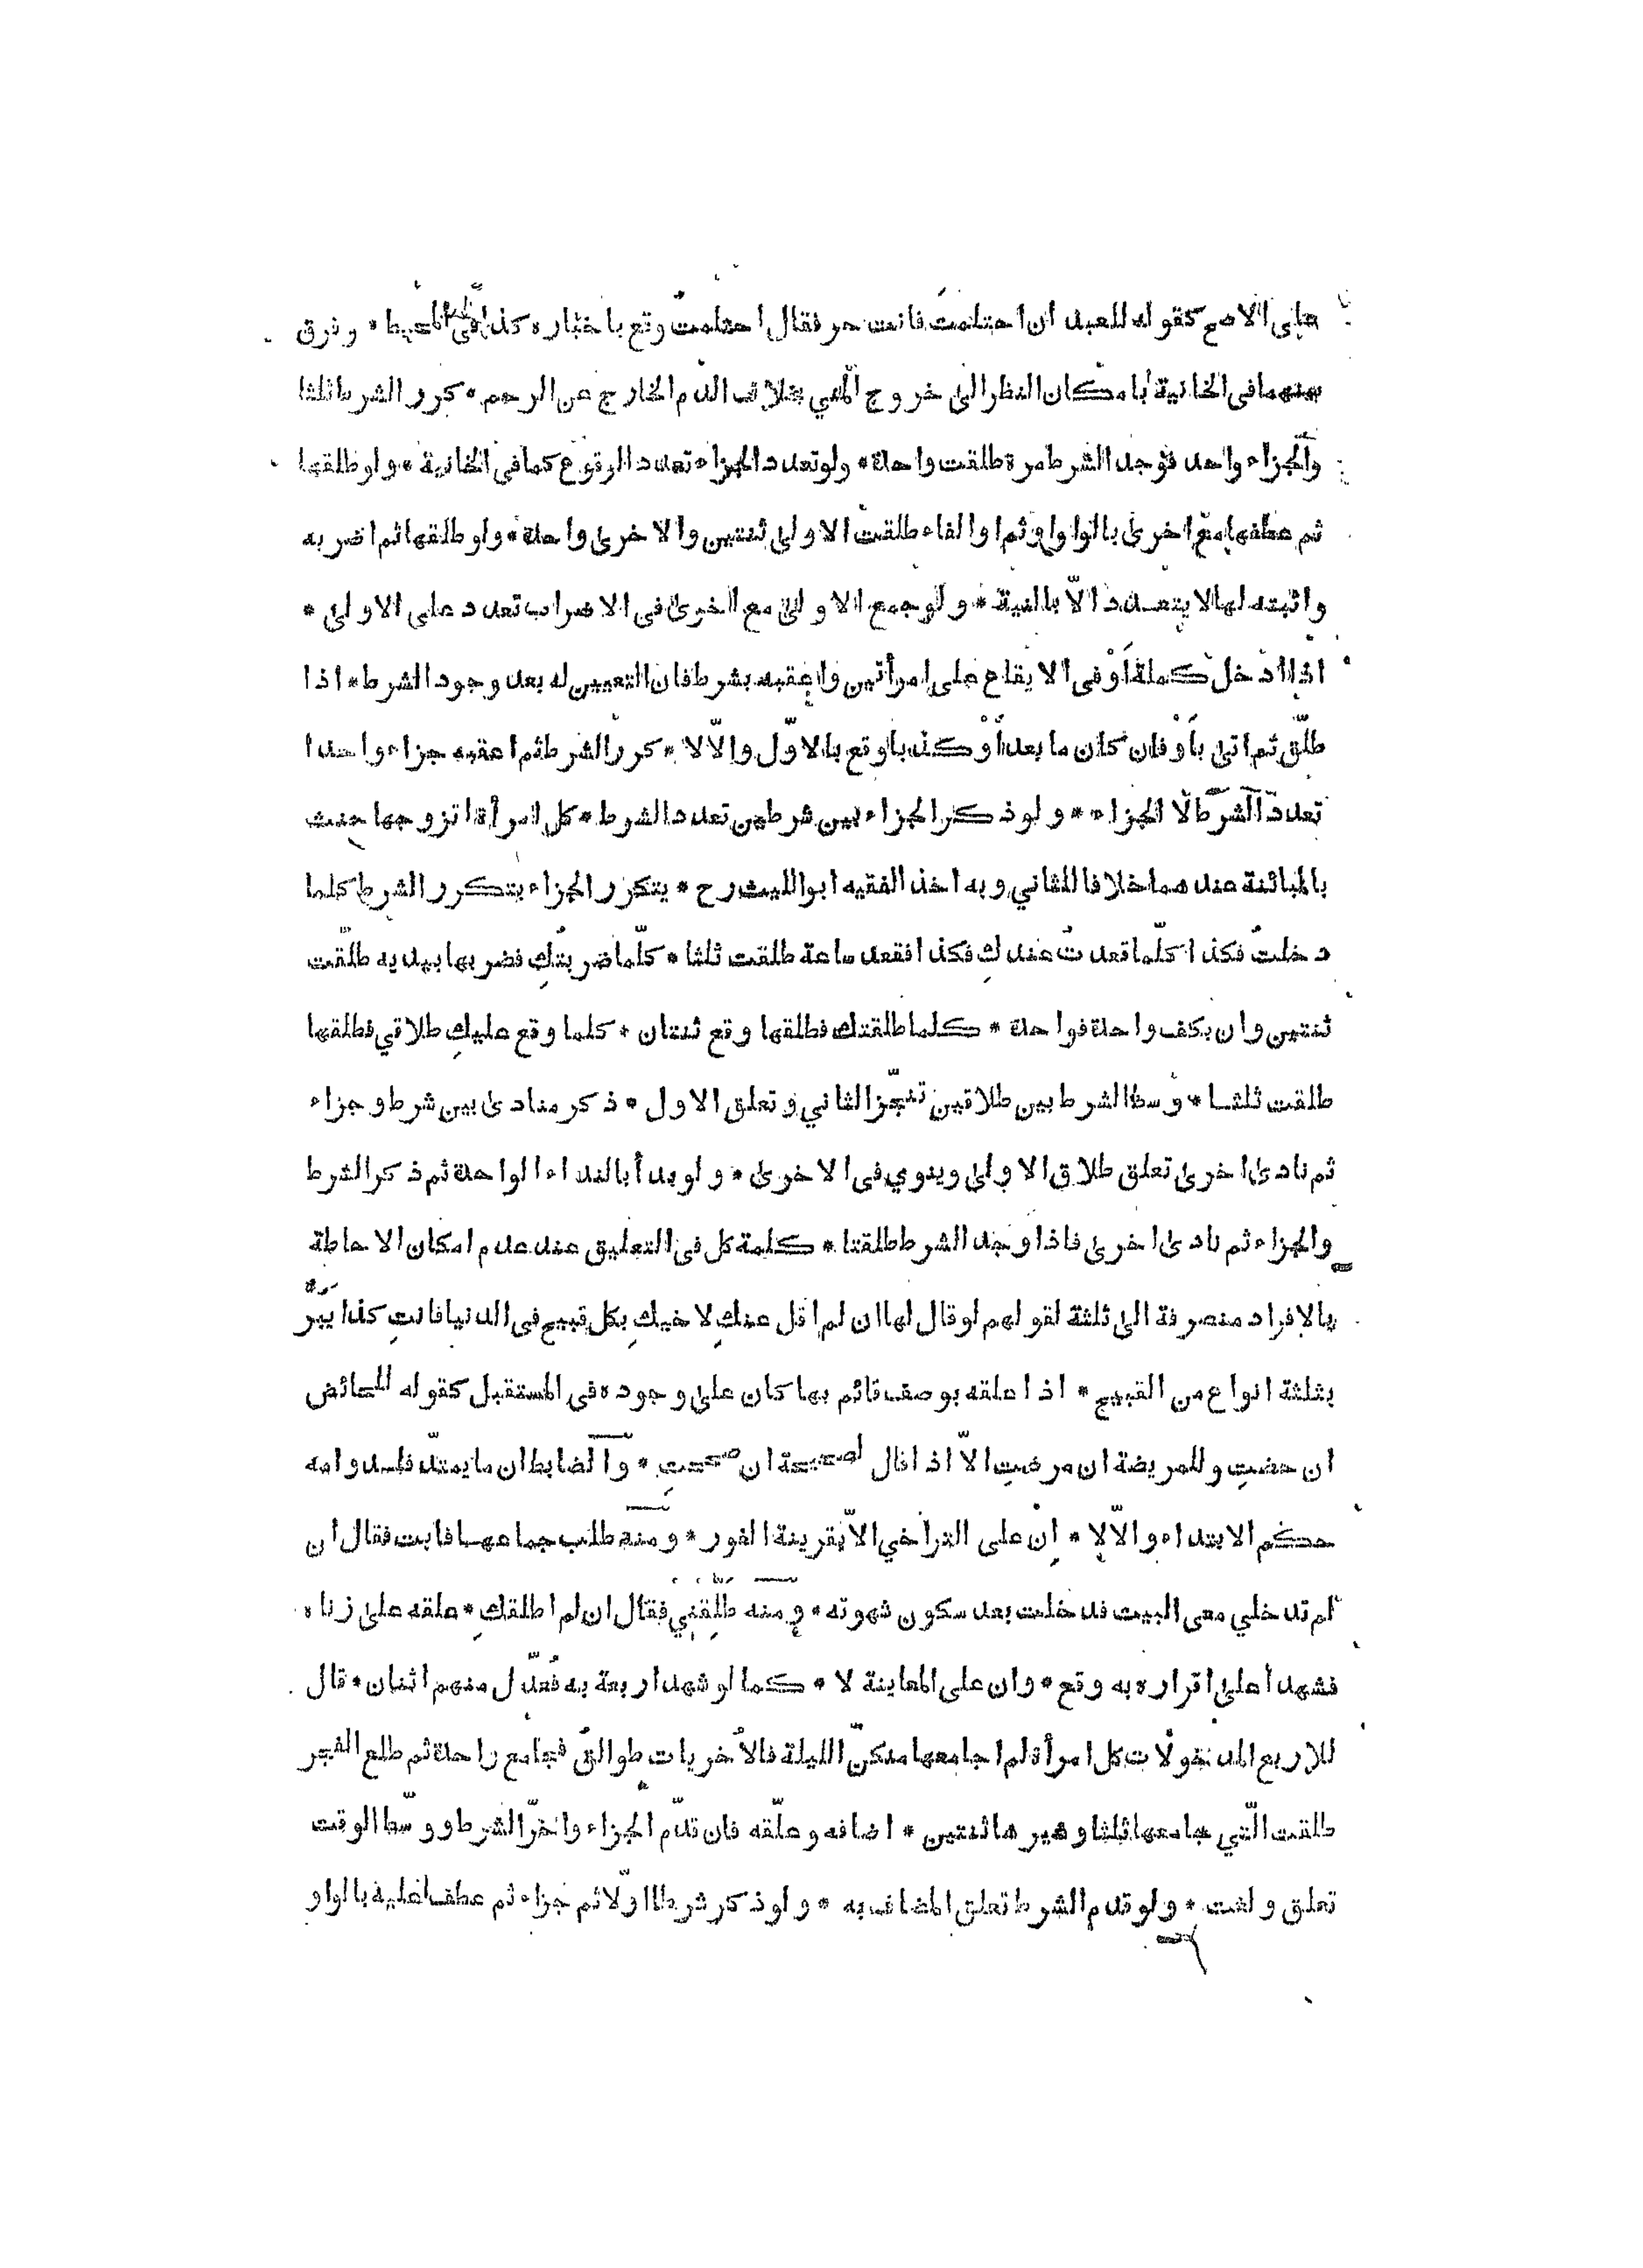 على الاصح كقوله للعبد ان احتلمتَ فانت حر فقال احتلمتُ وقع باخباره كذا فى المحيط * وفرق
بينهما فى الخانية بامكان النظر الى خروج المني بخلاف الدم الخارج عن الرحم * كرر الشرط ثلثا
والجزاء واحد فوجد الشرط مرة طلقت واحدة * ولو تعدد الجزاء تعدد الوقوع كما فى الخانية * ولو طلقها
ثم عطفها مع اخرى بالواو او ثم او الفاء طلقت الاولى ثنتين والاخرى واحدة * ولو طلقها ثم اضرب به
واثبته لها لا يتعدد الاّ بالنية * ولو جمع الاولى مع اخرى فى الاضراب تعدد على الاولى *
اذا ادخل كملة أَوْ فى الايقاع على امرأتين واعقبه بشرط فان التعيين له بعد وجود الشرط * اذا
طلّق ثم اتى بأَوْ فان كان ما بعد أَوْ كذبا وقع بالاوّل والّا لا * كرر الشرط ثم اعقبه جزاء واحدا
تعدد الشرط لا الجزاء * * ولو ذكر الجزاء بين شرطين تعدد الشرط * كل امرأة اتزوجها حنث
بالمبائنة عندهما خلافا للثاني وبه اخذ الفقيه ابو الليث رح * يتكرر الجزاء بتكرر الشرط كلما
دخلتُ فكذا كلّما قعدتُ عندكِ فكذا فقعد ساعة طلقت ثلثا * كلّما ضربتُكِ فضربها بيديه طلّقت
ثنتين وان بكف واحدة فواحدة * كلما طلقتك فطلقها وقع ثنتان * كلما وقع عليكِ طلاقي فطلقها
طلقت ثلثا * وسط الشرط بين طلاقين تنجّز الثاني وتعلق الاول * ذكر منادى بين شرط وجزاء
ثم نادى اخرى تعلق طلاق الاولى وينوي فى الاخرى * ولو بدأ بالنداء الواحدة ثم ذكر الشرط
والجزاء ثم نادى اخرى فاذا وجد الشرط طلقتا * كلمة كل فى التعليق عند عدم امكان الاحاطة
بالافراد منصرفة الى ثلثة لقولهم لو قال لها ان لم اقل عنكِ لاخيكِ بكل قبيح فى الدنيا فانتِ كذا يَبَرّ
بثلثة انواع من القبيح * اذا علقه بوصف قائم بها كان على وجوده فى المستقبل كقوله للحائض
ان حضتِ وللمريضة ان مرضتِ الاّ اذا قال لصحيحة ان صححتِ * والضابط ان ما يمتدّ فلدوامه
حكم الابتداء والّا لا * اِنْ على التراخي الاّ بقرينة الفور * ومنه طلب جماعها فابت فقال ان
لم تدخلي معى البيت فدخلت بعد سكون شهوته * ومنه طَلِّقْنِي فقال ان لم اطلقكِ * علقه على زناه
فشهدا على اقراره به وقع * وان على المعاينة لا * كما لو شهد اربعة به فعُدّل منهم اثنان * قال
للاربع المدخولات كل امرأة لم اجامعها منكنّ الليلة فالاُخريات طوالق فجامع واحدة ثم طلع الفجر
طلقت الّتي جامعها ثلثا وغيرها ثنتين * اضافه وعلّقه فان قدّم الجزاء واخّر الشرط ووسّط الوقت
تعلق ولغت * ولو قدم الشرط تعلق المضاف به * ولو ذكر شرطا اوّلا ثم جزاء ثم عطف عليه بالواو